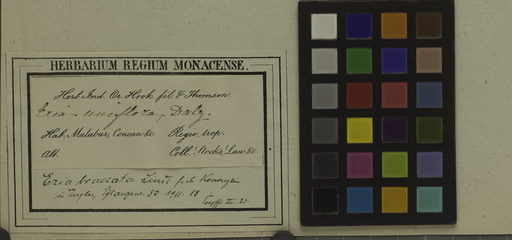 HERBARIUM REGIUM MONACENSE.
Herb. Ind. Or. Hook. fil. & Thomson.
Eria uniflora, Dalz.
Hab. Malabar, Concan &c. Regio. trop.
Alt. Coll. Stocks, Law &c.
Eria braccata Lindl. fid. Kränzlin
in Engler, Pflanzenr. 50 1911 18